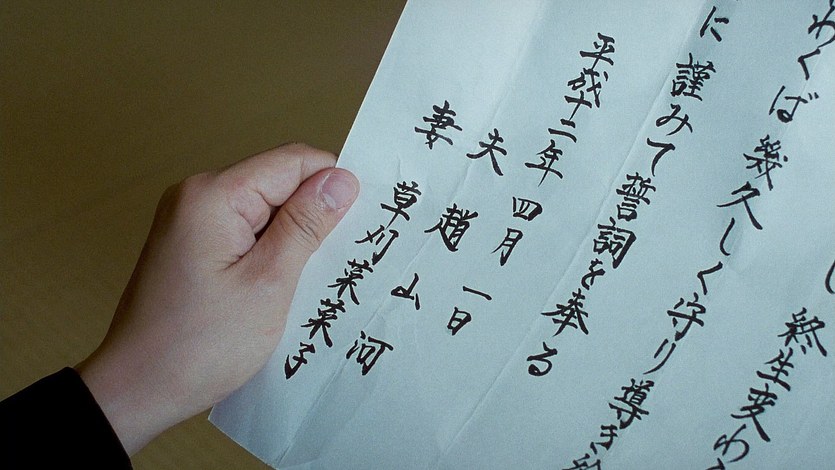 し 終生変わ
わくば 幾久しく守り導き給
に 謹みて誓詞を奉る
平成十二年 四月 一日
夫 趙 山 河
妻 草刈 菜菜子